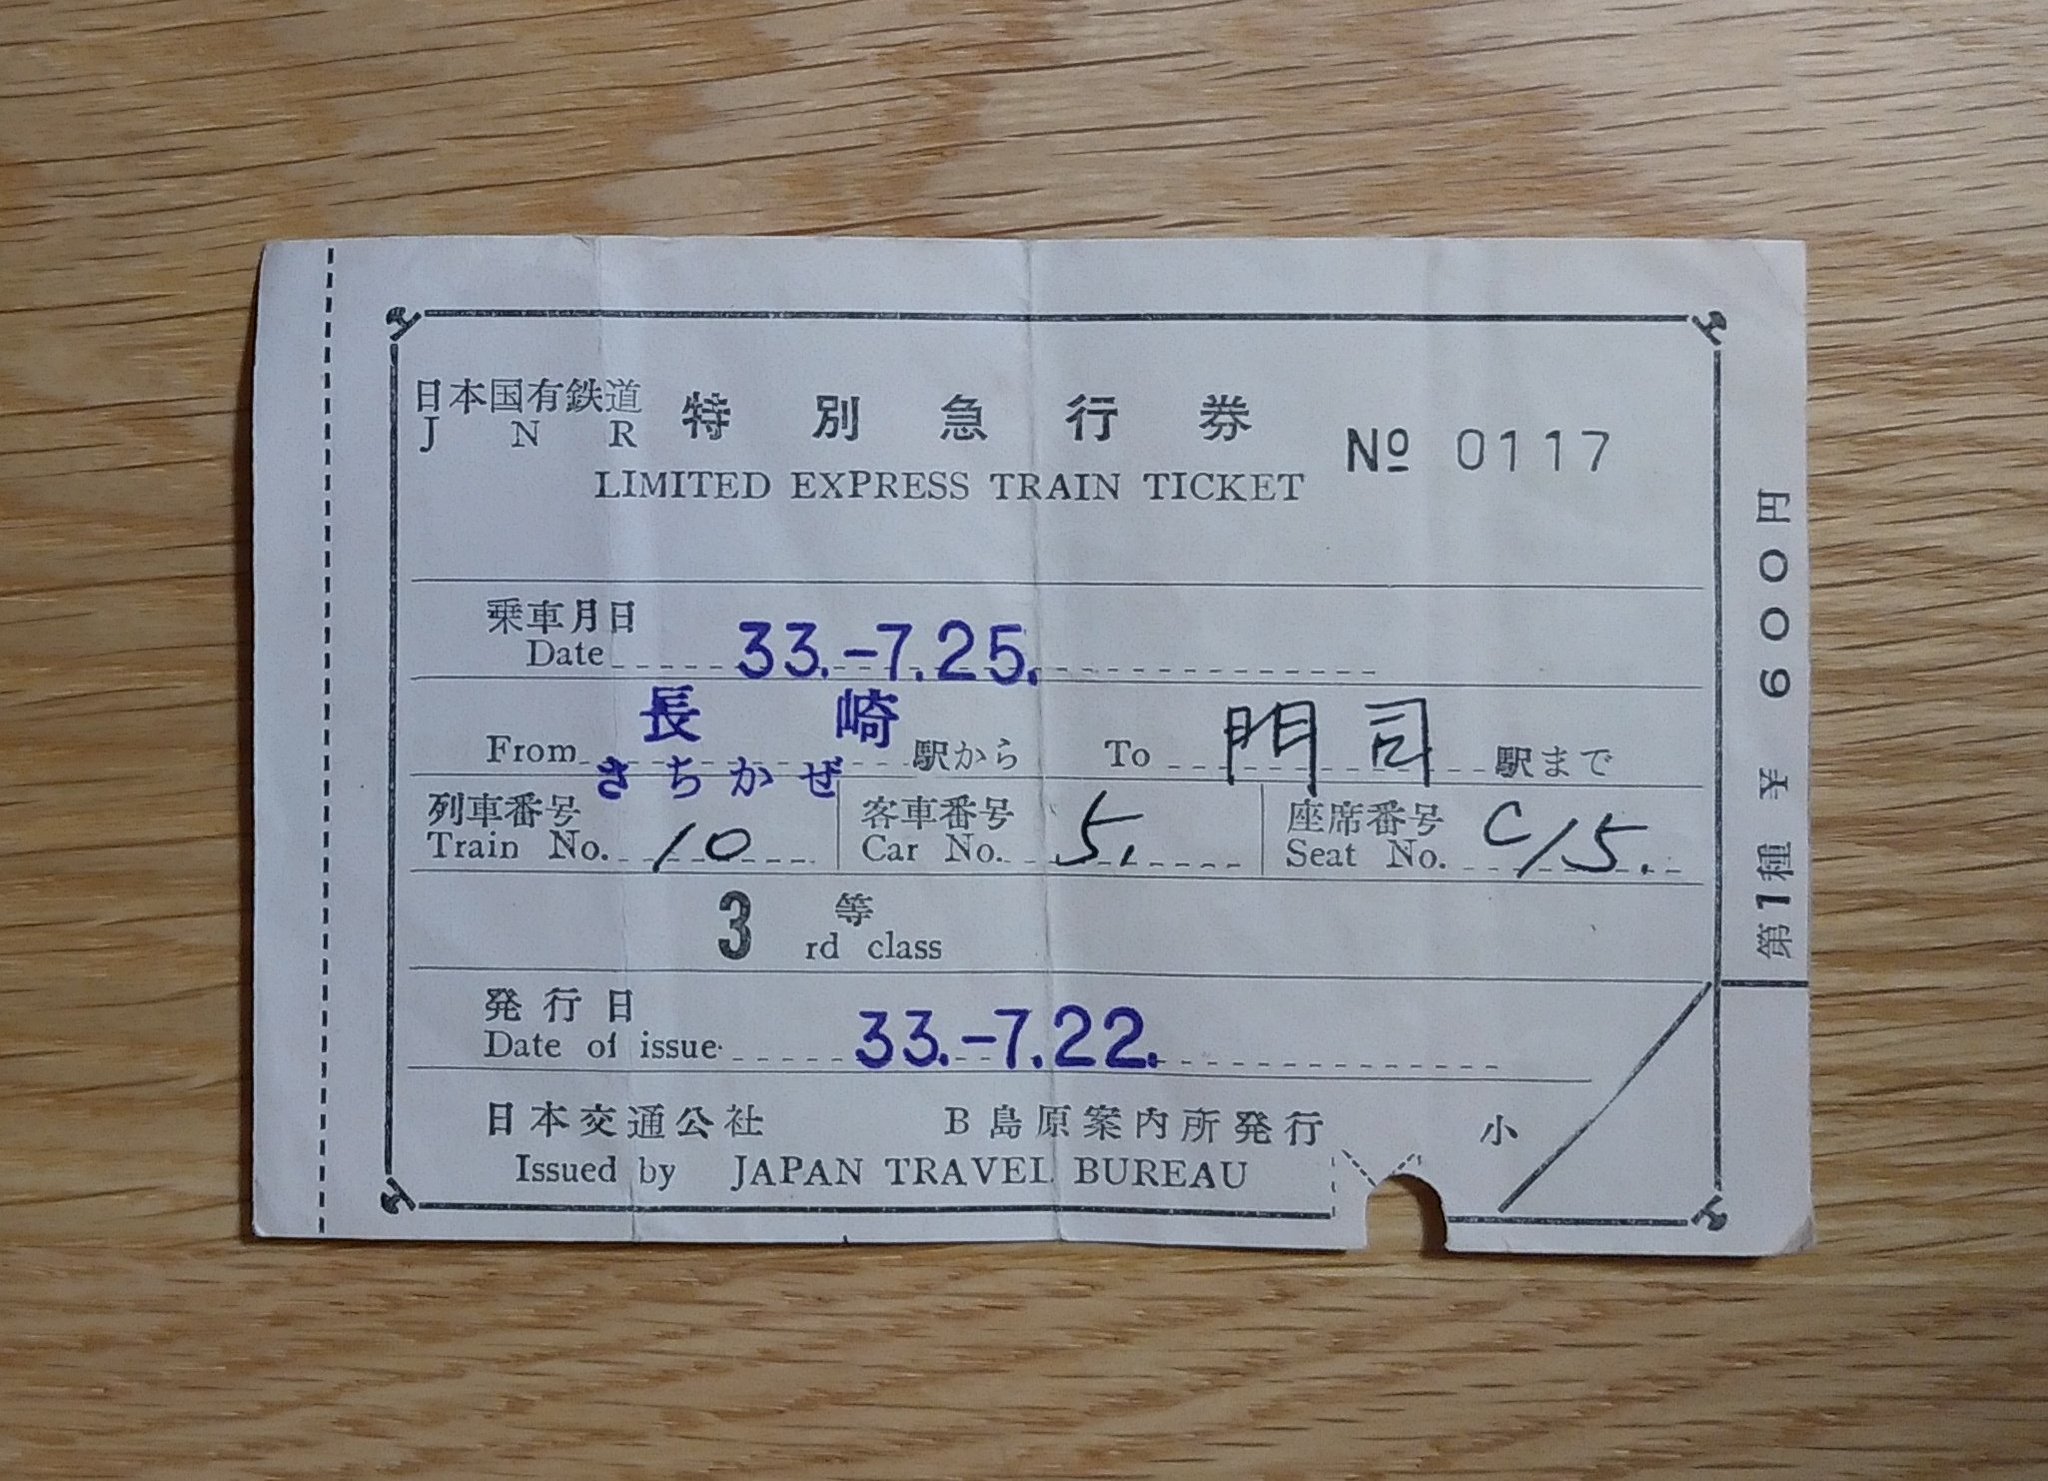 日本国有鉄道 特別急行券
J N R
LIMITED EXPRESS TRAIN TICKET
№ 0117
乗車月日
Date 33.-7.25.
From 長崎 駅から To 門司 駅まで
さちかぜ
列車番号 客車番号 座席番号
Train No. 10 Car No. 5. Seat No. C/15.
3 等
rd class
発行日
Date of issue 33.-7.22.
日本交通公社 B島原案内所発行 小
Issued by JAPAN TRAVEL BUREAU
第1種 ¥ 600円